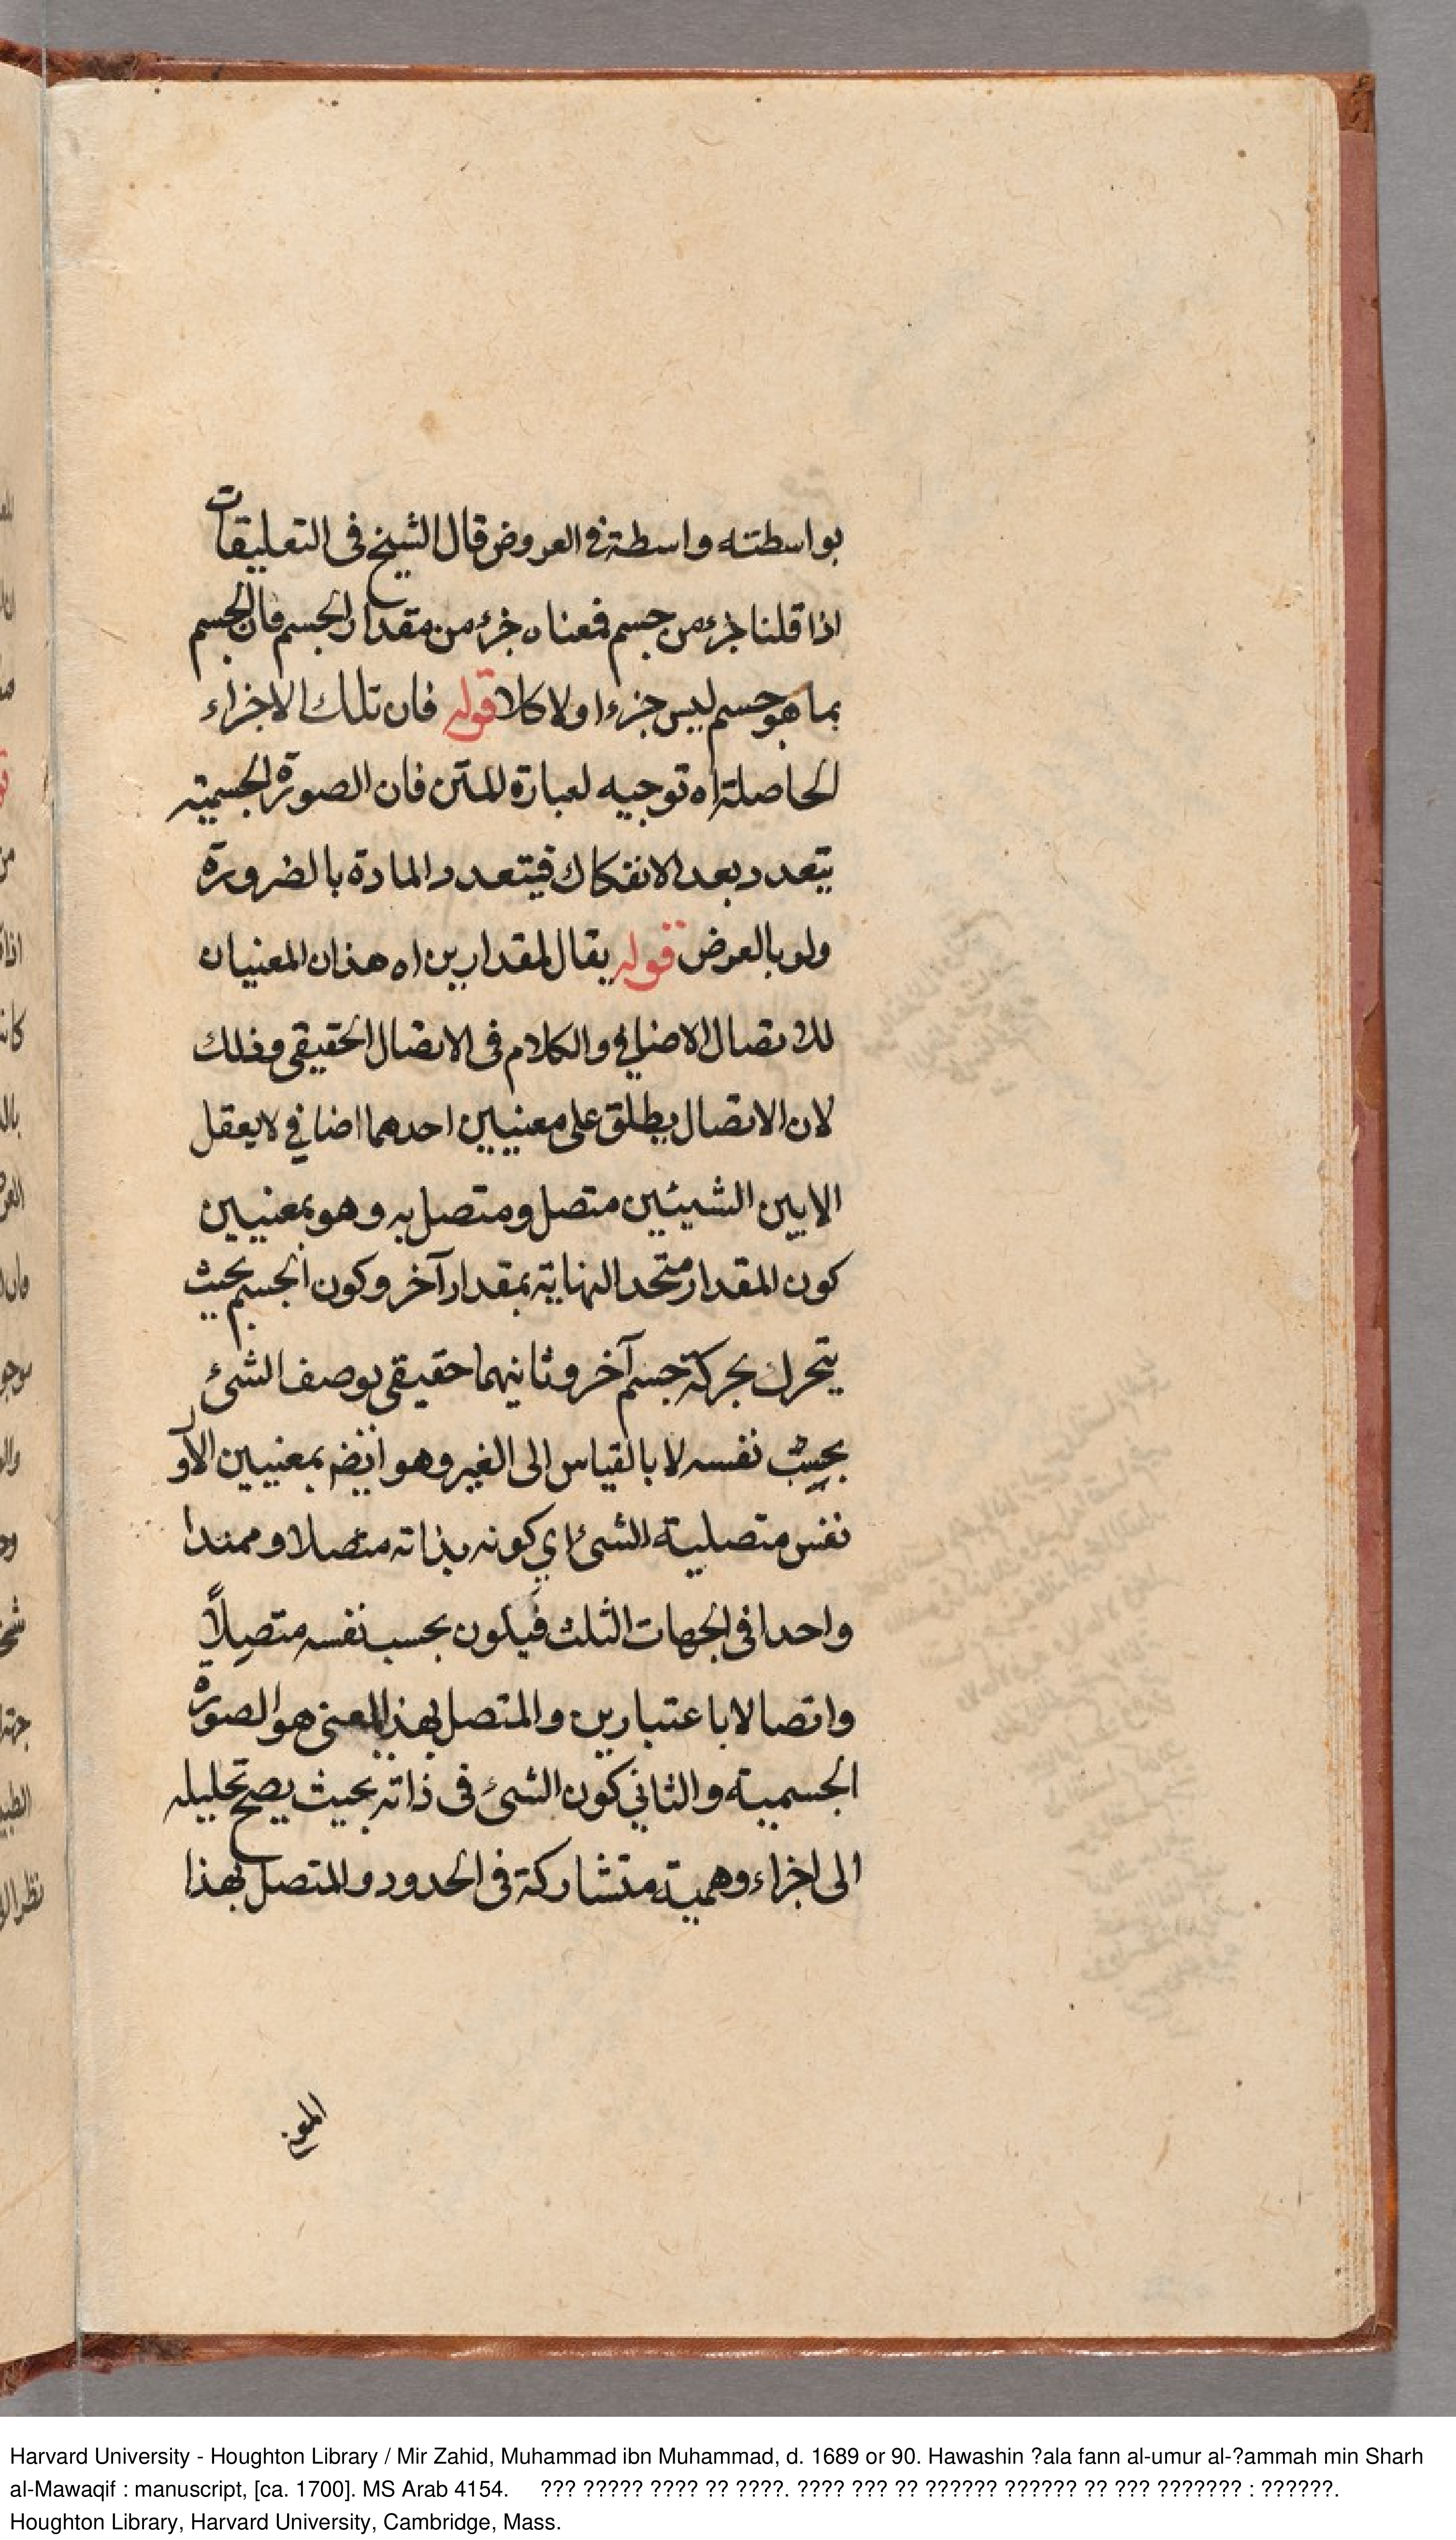 بواسطته واسطة في العروض قال الشيخ فى التعليقات
اذا قلنا جزء من جسم فمعناه جزء من مقدار الجسم فان الجسم
بما هو جسم ليس جزءا ولا كلا قوله فان تلك الاجزاء
الحاصلة اه توجيه لعبارة المتن فان الصورة الجسمية
يتعدد بعد الانفكاك فيتعدد المادة بالضرورة
ولو بالعرض قوله يقال لمقدارين اه هذان المعنيان
للاتصال الاضافي والكلام فى الاتصال الحقيقى وذلك
لان الاتصال يطلق على معنيين احدهما اضافي لا يعقل
الا بين الشيئين متصل ومتصل به وهو بمعنيين
كون المقدار متحد النهاية بمقدار آخر وكون الجسم بحيث
يتحرك بحركة جسم آخر وثانيهما حقيقى يوصف الشئ
بحسب نفسه لا بالقياس الى الغير وهو ايضا بمعنيين الاول
نفس متصلية الشئ اي كونه بذاته متصلا وممتدا
واحدا فى الجهات الثلث فيكون بحسب نفسه متصلاً
واتصالا باعتبارين والمتصل بهذا المعنى هو الصورة
الجسمية والثاني كون الشئ فى ذاته بحيث يصح تحليله
الى اجزاء وهمية متشاركة فى الحدود والمتصل بهذا
Harvard University - Houghton Library / Mir Zahid, Muhammad ibn Muhammad, d. 1689 or 90. Hawashin ?ala fann al-umur al-?ammah min Sharh
al-Mawaqif : manuscript, [ca. 1700]. MS Arab 4154. ??? ????? ???? ?? ????. ???? ??? ?? ?????? ?????? ?? ??? ??????? : ??????.
Houghton Library, Harvard University, Cambridge, Mass.